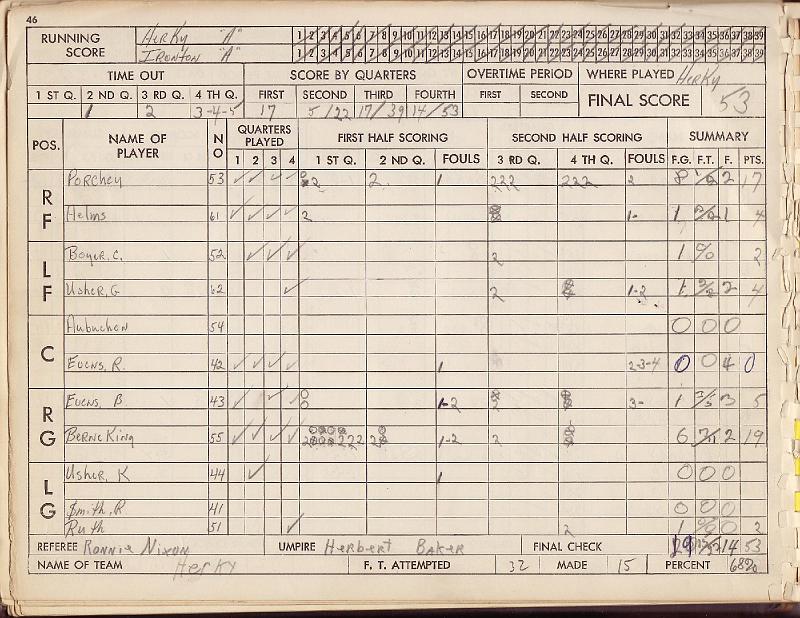 46
RUNNING SCORE Herky "A" 1 2 3 4 5 6 7 8 9 10 11 12 13 14 15 16 17 18 19 20 21 22 23 24 25 26 27 28 29 30 31 32 33 34 35 36 37 38 39
Ironton "A" 1 2 3 4 5 6 7 8 9 10 11 12 13 14 15 16 17 18 19 20 21 22 23 24 25 26 27 28 29 30 31 32 33 34 35 36 37 38 39
TIME OUT SCORE BY QUARTERS OVERTIME PERIOD WHERE PLAYED Herky
1 ST Q. 2 ND Q. 3 RD Q. 4 TH Q. FIRST SECOND THIRD FOURTH FIRST SECOND FINAL SCORE 53
1 2 3-4-5 17 5/22 17/39 14/53
POS. NAME OF PLAYER NO QUARTERS PLAYED FIRST HALF SCORING SECOND HALF SCORING SUMMARY
1 2 3 4 1 ST Q. 2 ND Q. FOULS 3 RD Q. 4 TH Q. FOULS F.G. F.T. F. PTS.
RF Porchey 53 ✓ ✓ ✓ ✓ 2 2 1 222 222 2 8 1/2 2 17
Helms 61 ✓ ✓ ✓ ✓ 2 1- 1 2/2 1 4
LF Boyer, C. 52 ✓ ✓ ✓ 2 1 0/0 2
Usher, G 62 ✓ 2 1-2 1 2/2 2 4
C Aubuchon 54 0 0 0
Evens, R. 42 ✓ ✓ ✓ ✓ 1 2-3-4 0 0 4 0
RG Evens, B 43 ✓ ✓ ✓ 1-2 2 3- 1 3/5 3 5
Berne King 55 ✓ ✓ ✓ ✓ 222 2 1-2 2 6 2 19
LG Usher, K 44 ✓ 1 0 0 0
Smith, R 41 0 0 0
Ruth 51 ✓ 2 1 0/0 0 2
REFEREE Ronnie Nixon UMPIRE Herbert Baker FINAL CHECK 19 15/32 14 53
NAME OF TEAM Herky F. T. ATTEMPTED 32 MADE 15 PERCENT 68%